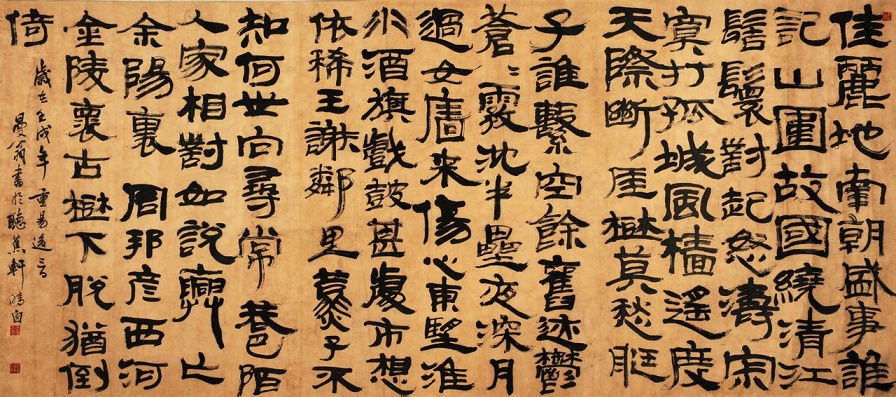 佳麗地南朝盛事誰
記山圍故國繞清江
髻鬟對起怒濤宗
寞打孤城風檣遙度
天際斷厓樹莫愁艇
子誰繫空餘舊迹鬱
蒼〻霧沈半壘夜深月
過女牆來傷心東望淮
水酒旗戲鼓甚處市想
依稀王謝鄰里燕子不
知何世向尋常巷陌
人家相對如說興亡
余陽裏 周邦彥西河
金陵褱古樹下脫猶倒
倚
歲在壬戌年重昜
曼翁書於聽蕉軒